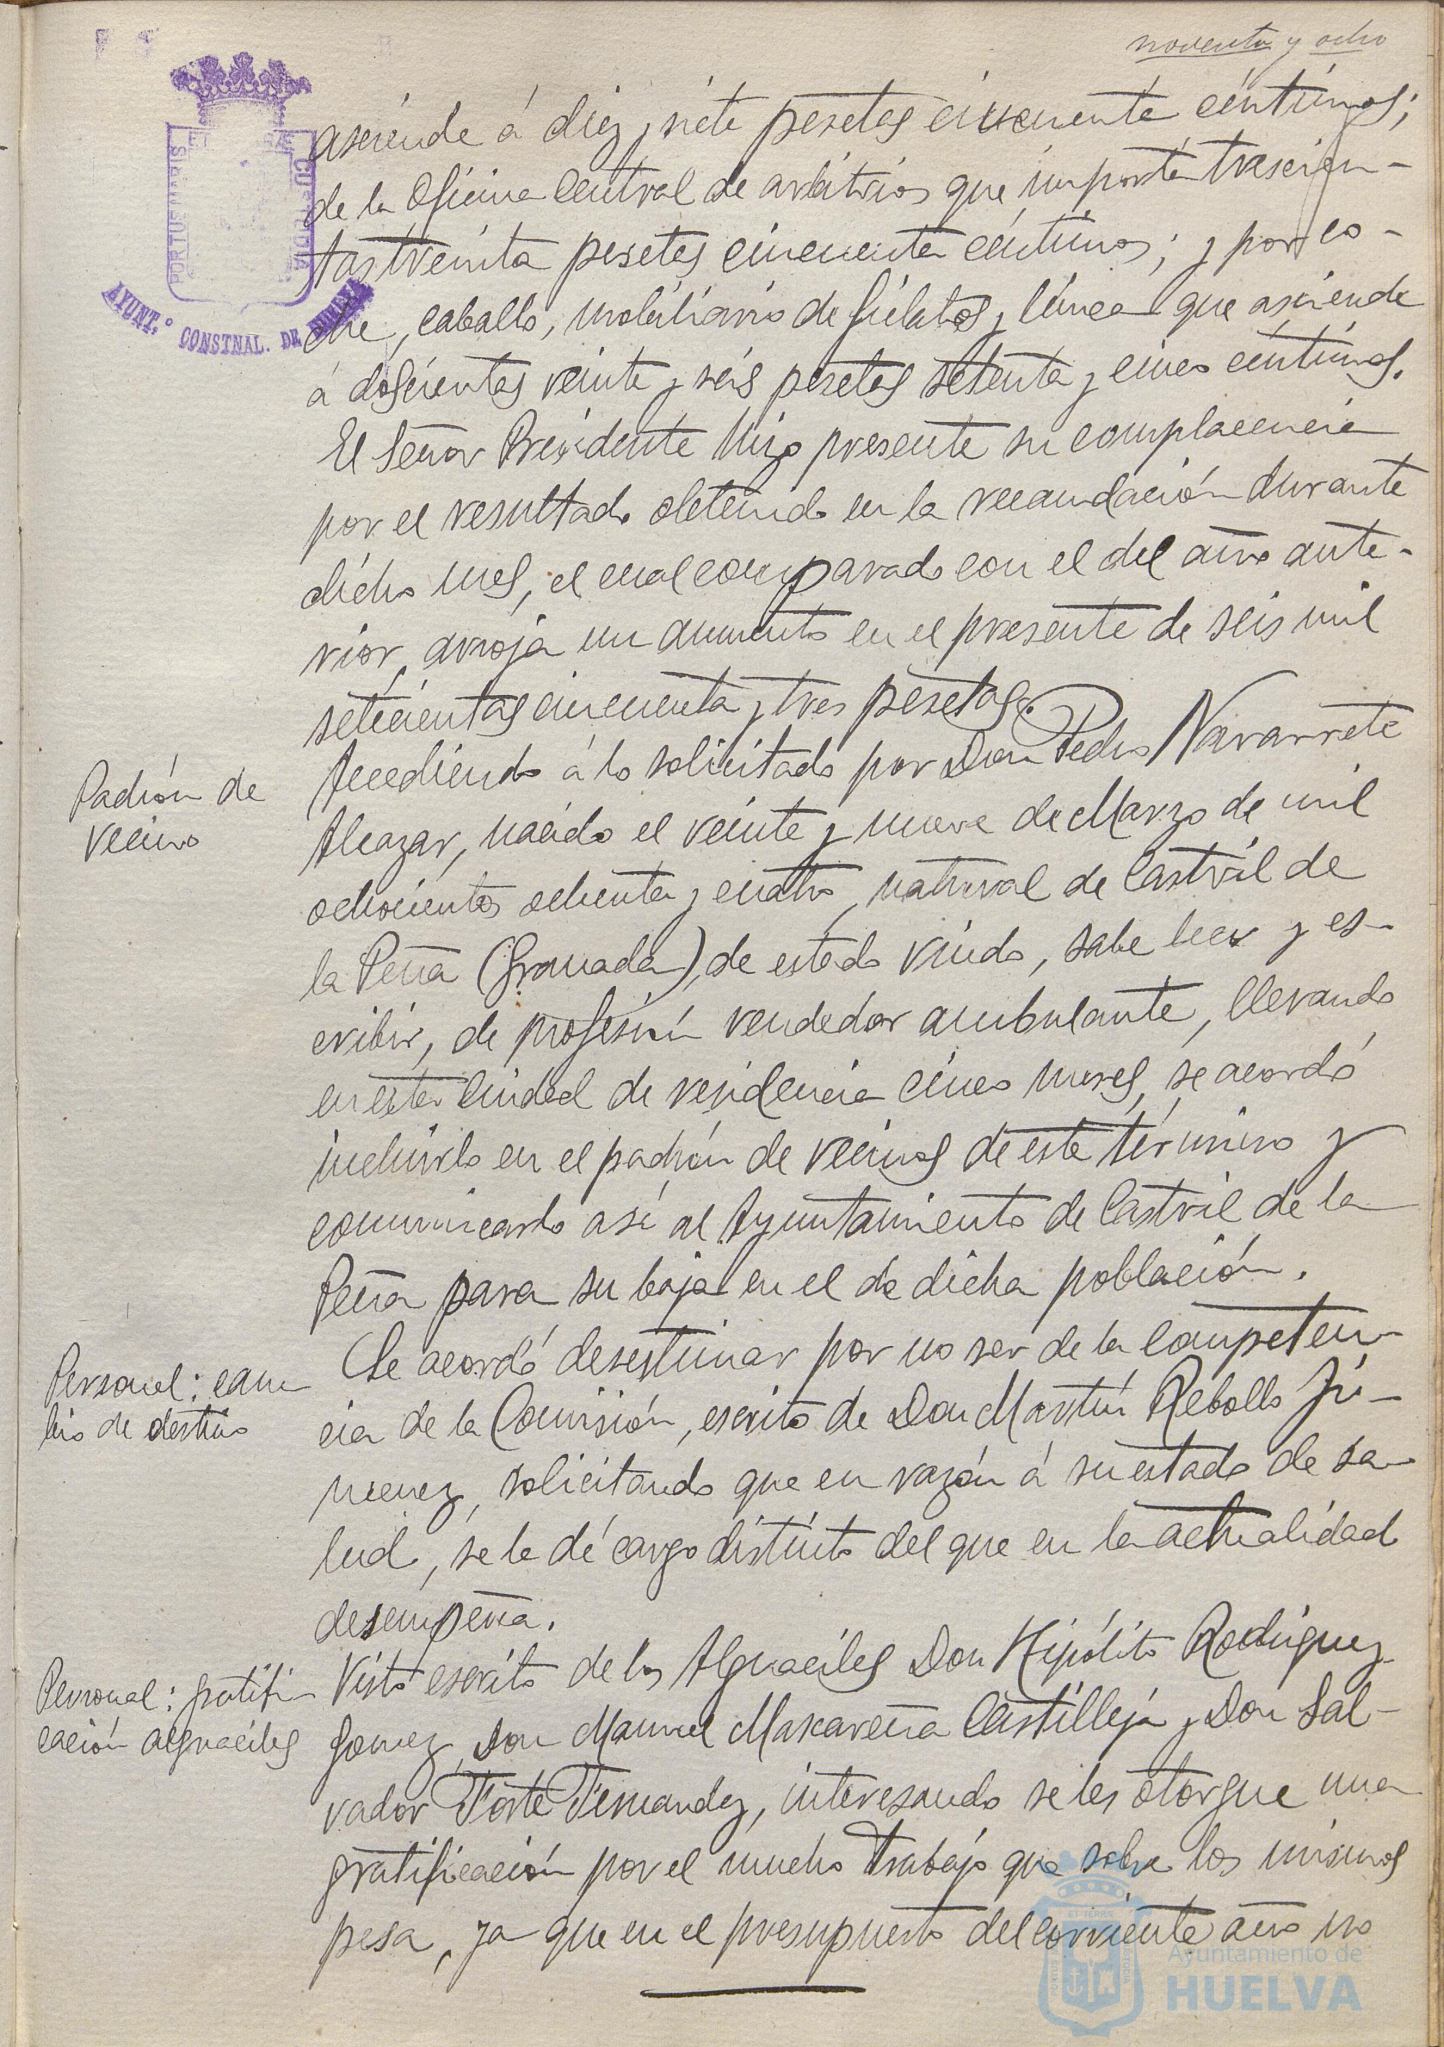 noventa y ocho
PORTUS MARIS
CUSTODIA
AYUNT.º CONSTNAL. DE HUELVA
asciende á diez y siete pesetas cincuenta céntimos;
de la Oficina Central de arbitrios que importa trescien-
tas treinta pesetas cincuenta céntimos; y por co-
che, caballo, mobiliario de fielatos y línea que asciende
á doscientas veinte y seis pesetas setenta y cinco céntimos.
El Señor Presidente hizo presente su complacencia
por el resultado obtenido en la recaudación durante
dicho mes, el cual comparado con el del año ante-
rior, arroja un aumento en el presente de seis mil
setecientas cincuenta y tres pesetas.
Padrón de
vecinos
Accediendo á lo solicitado por Don Pedro Navarrete
Alcazar, nacido el veinte y nueve de Marzo de mil
ochocientos ochenta y cuatro, natural de Castril de
la Peña (Granada), de estado viudo, sabe leer y es-
cribir, de profesión vendedor ambulante, llevando
en esta Ciudad de residencia cinco meses, se acordó
incluirlo en el padrón de vecinos de este término y
comunicarlo así al Ayuntamiento de Castril de la
Peña para su baja en el de dicha población.
Personal: cam
bio de destino
Se acordó desestimar por no ser de la competen-
cia de la Comisión, escrito de Don Martín Rebollo Ji-
menez, solicitando que en razón á su estado de sa-
lud, se le dé cargo distinto del que en la actualidad
desempeña.
Personal: gratifi
cación alguaciles
Visto escrito de los Alguaciles Don Hipólito Rodriguez
Gomez, Don Manuel Macareña Castilleja y Don Sal-
vador Forte Fernandez, interesando se les otorgue una
gratificación por el mucho trabajo que sobre los mismos
pesa, ya que en el presupuesto del corriente año no
Ayuntamiento de
HUELVA